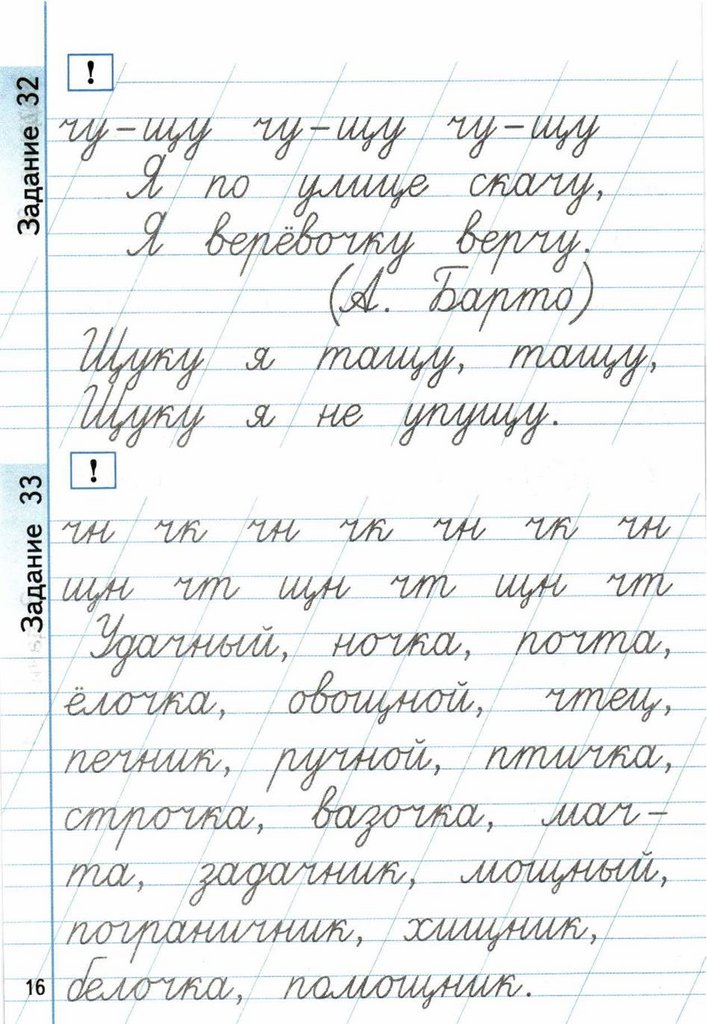 Задание 32
!
чу-щу чу-щу чу-щу
Я по улице скачу,
Я верёвочку верчу.
(А. Барто)
Щуку я тащу, тащу,
Щуку я не упущу.
Задание 33
!
чн чк чн чк чн чк чн
щн чт щн чт щн чт
Удачный, ночка, почта,
ёлочка, овощной, чтец,
печник, ручной, птичка,
строчка, вазочка, мач-
та, задачник, мощный,
пограничник, хищник,
белочка, помощник.
16